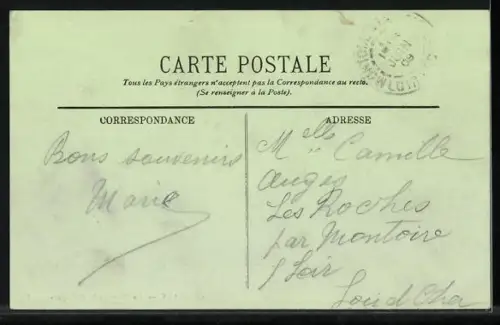 CARTE POSTALE
Tous les Pays étrangers n'acceptent pas la Correspondance au recto.
(Se renseigner à la Poste).
CORRESPONDANCE
Bons souvenirs
Marie
ADRESSE
Melle Camille
Auger
Les Roches
par Montoire
s/ Loir
Loir et Cher